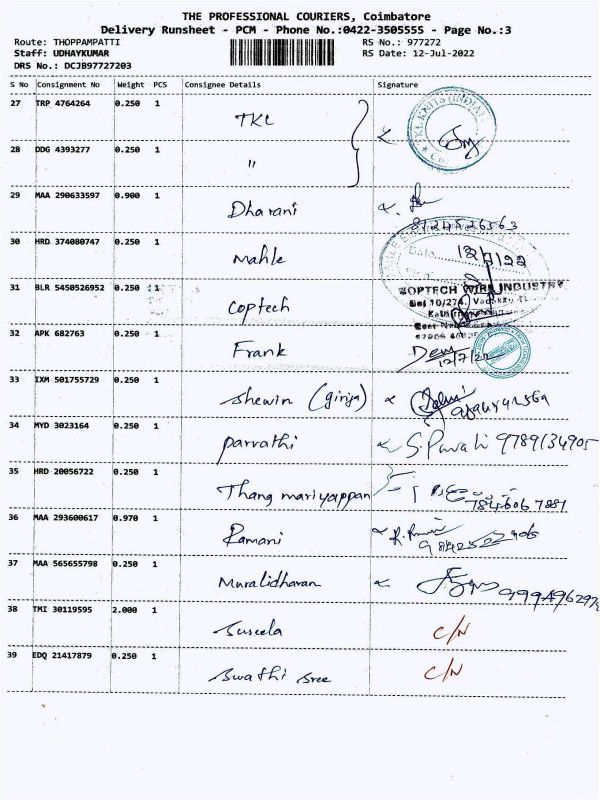 THE PROFESSIONAL COURIERS, Coimbatore
Delivery Runsheet - PCM - Phone No.:0422-3505555 - Page No.:3
Route: THOPPAMPATTI RS No.: 977272
Staff: UDHAYKUMAR RS Date: 12-Jul-2022
DRS No.: DCJB97727203
S No Consignment No Weight PCS Consignee Details Signature
27 TRP 4764264 0.250 1 TKL
28 DDG 4393277 0.250 1 "
29 MAA 290633597 0.900 1 Dharani
30 HRD 374080747 0.250 1 Mahle 12/7/22
31 BLR 5450526952 0.250 1 Coptech COPTECH WIRE INDUSTRY
32 APK 682763 0.250 1 Frank 12/7/22
33 IXM 501755729 0.250 1 Shewin (girija)
34 MYD 3023164 0.250 1 parvathi S.Parvathi 9789134905
35 HRD 20056722 0.250 1 Thang mariyappan
36 MAA 293600617 0.970 1 Ramani
37 MAA 565655798 0.250 1 Muralidharan
38 TMI 30119595 2.000 1 Suseela C/N
39 EDQ 21417879 0.250 1 Swathi Sree C/N